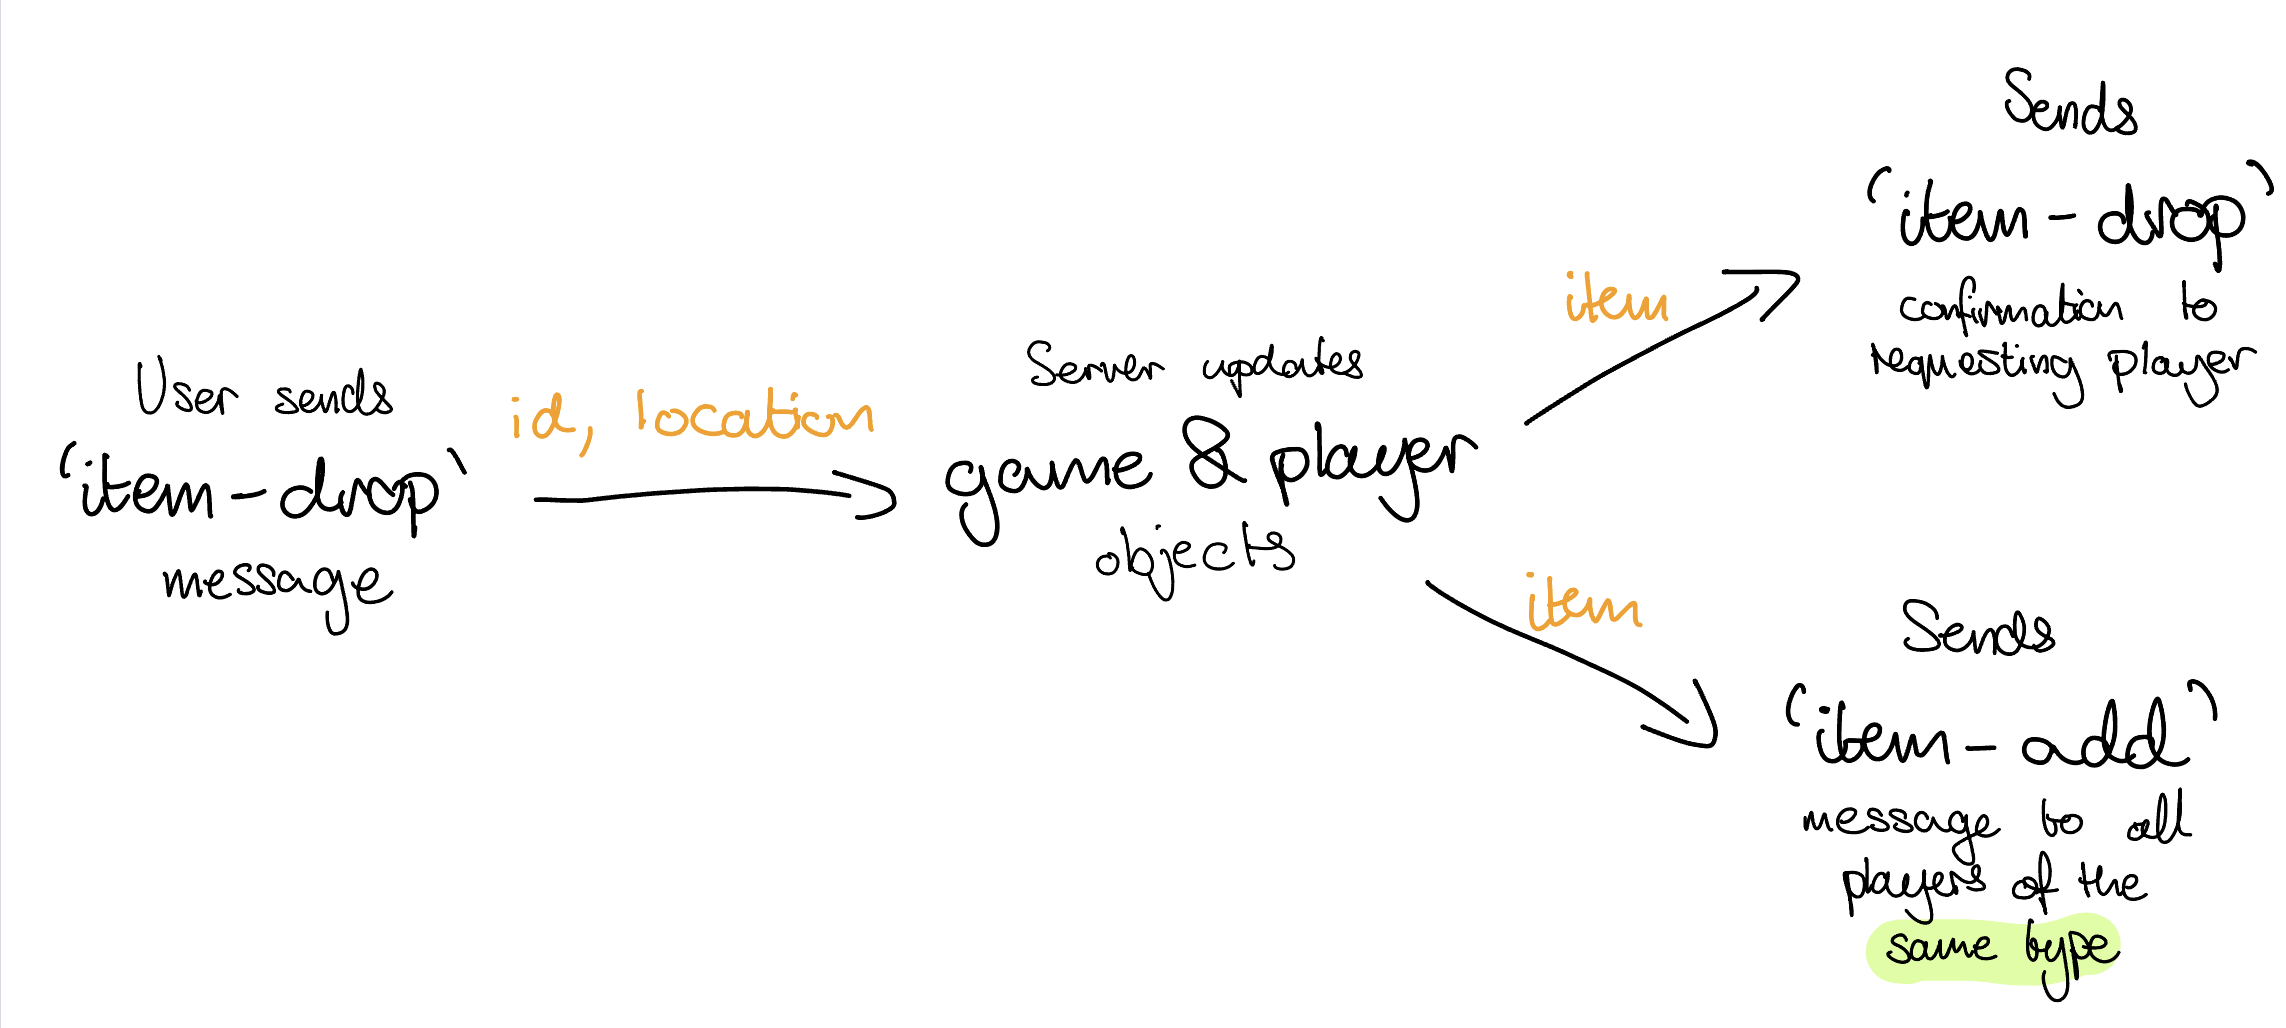 User sends
'item-drop'
message
id, location
Server updates
game & player
objects
item
Sends
'item-drop'
confirmation to
requesting player
item
Sends
'item-add'
message to all
players of the
same type